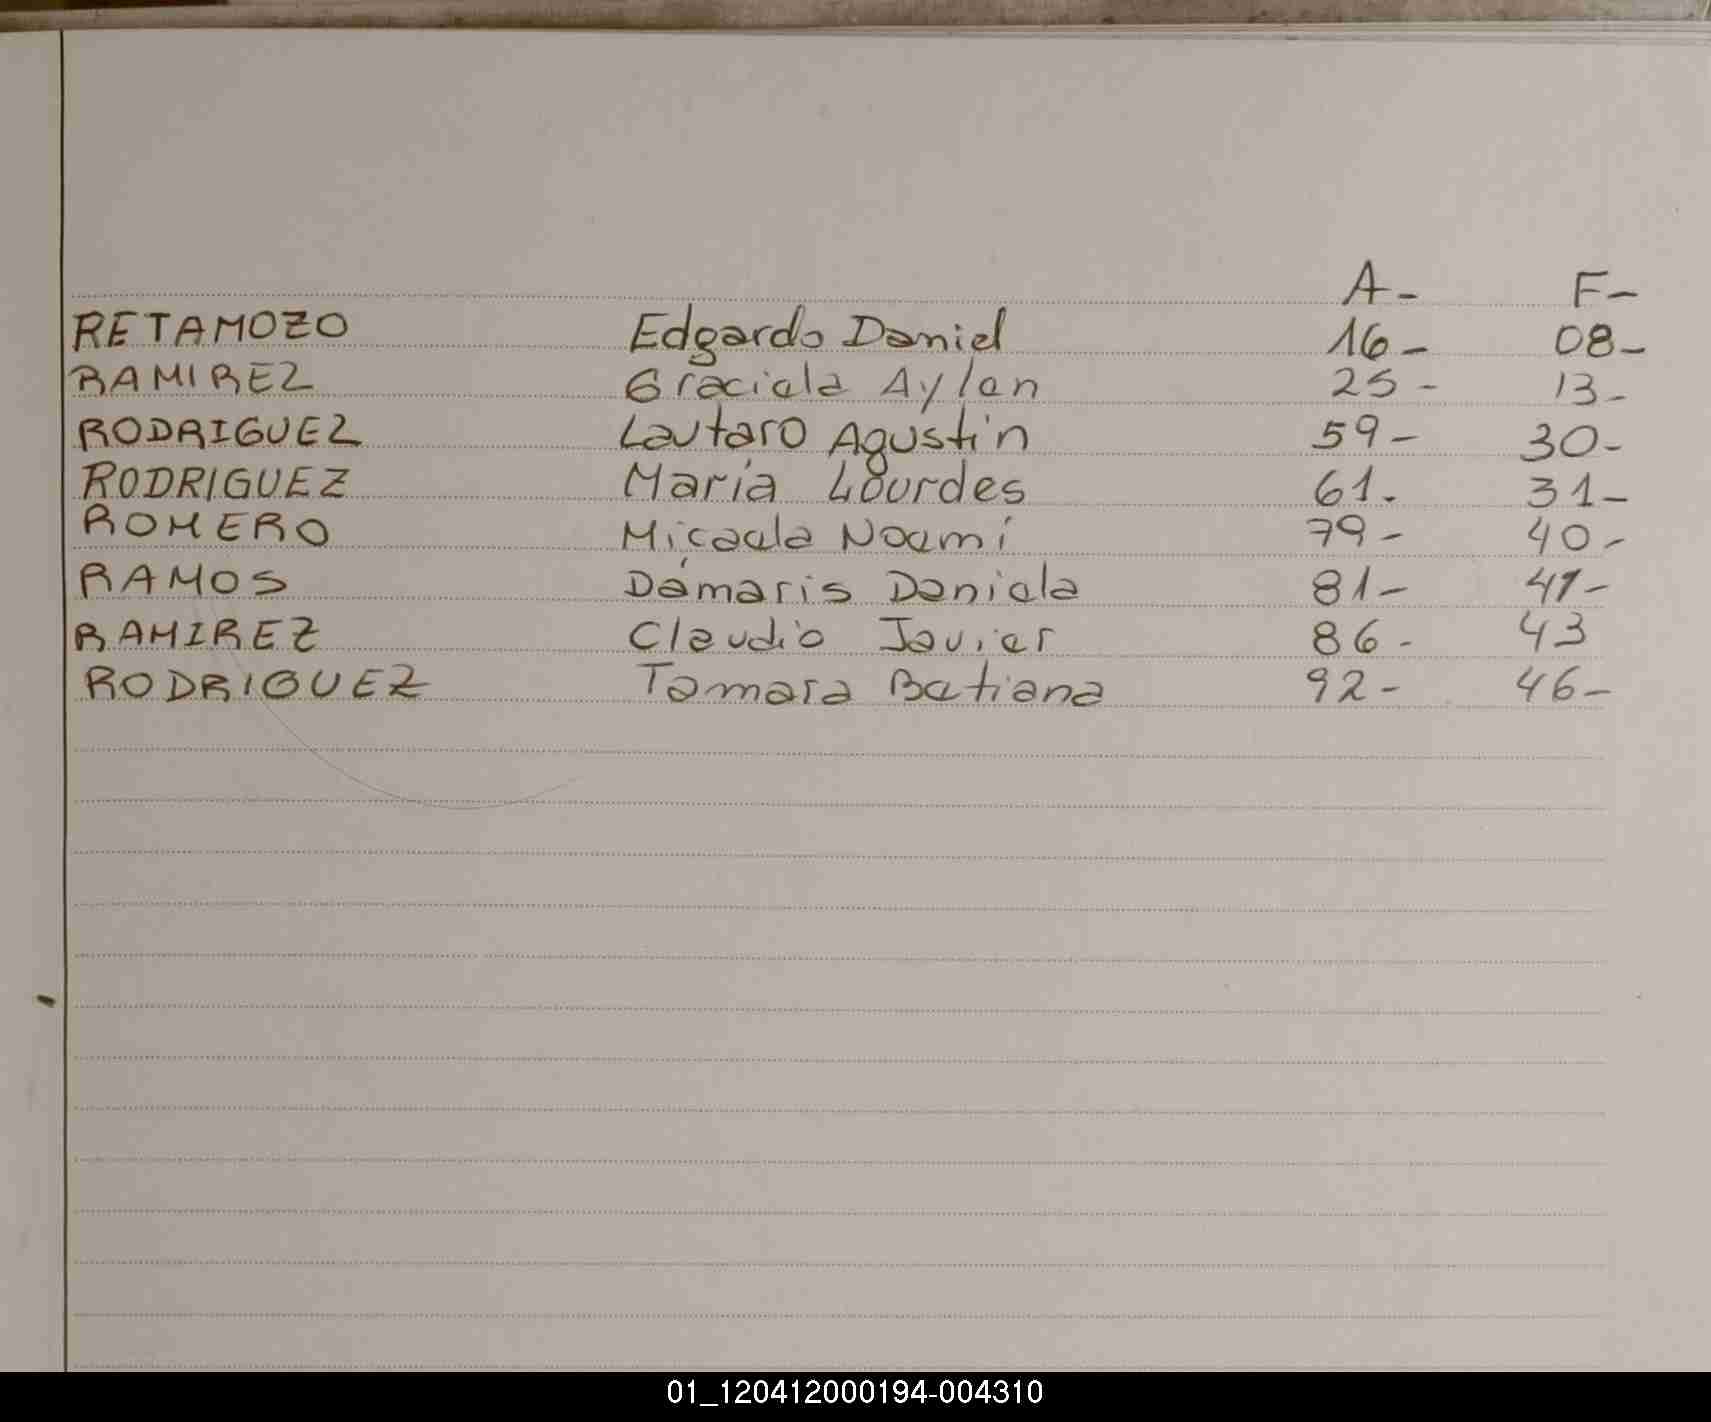 A- F-
RETAMOZO Edgardo Daniel 16- 08-
RAMIREZ Graciela Aylen 25- 13-
RODRIGUEZ Lautaro Agustin 59- 30-
RODRIGUEZ María Lourdes 61. 31-
ROMERO Micaela Noemí 79- 40-
RAMOS Dámaris Daniela 81- 41-
RAMIREZ Claudio Javier 86- 43
RODRIGUEZ Tamara Betiana 92- 46-
01_120412000194-004310